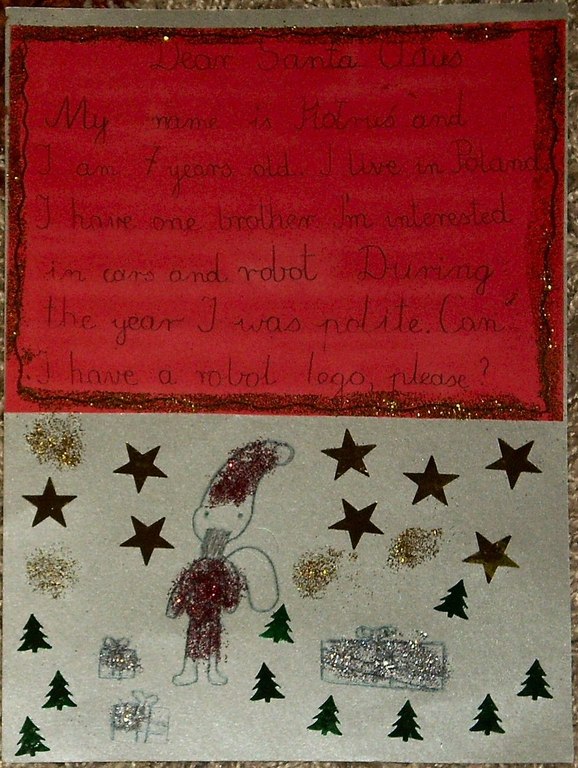 Dear Santa Claus
My name is and
I am 7 years old. I live in Poland.
I have one brother. I'm interested
in cars and robot During
the year I was polite. Can
I have a robot lego, please?